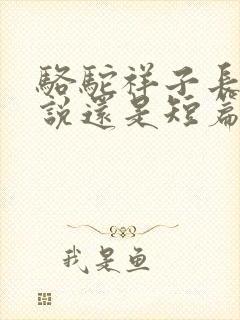 駱駝祥子長
說還是短篇
我是魚